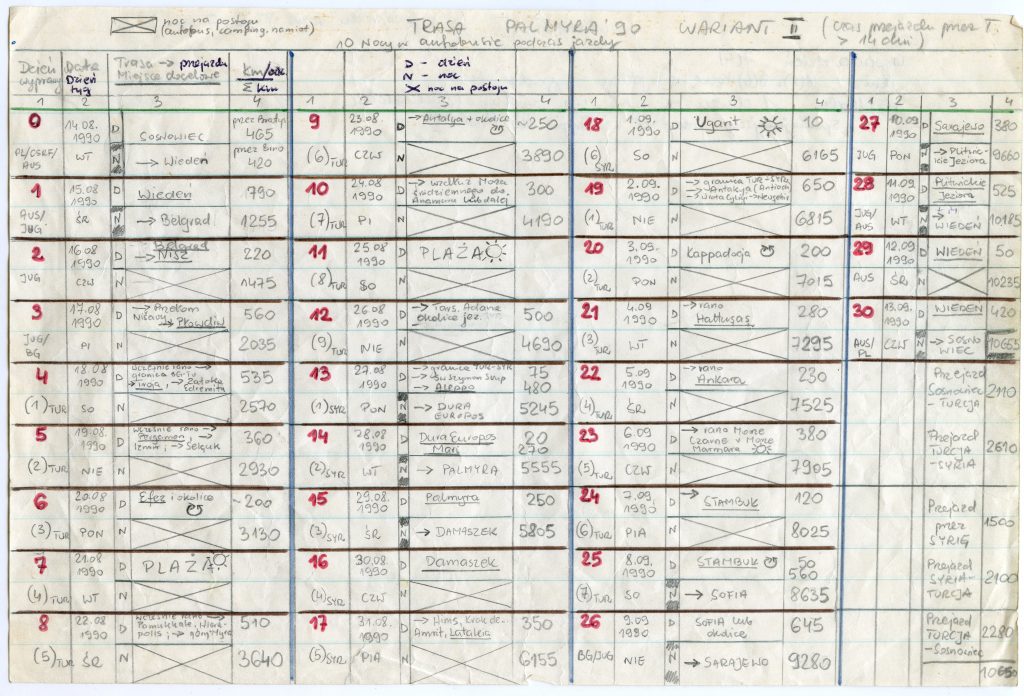 noc na postoju
(autobus, camping, namiot)
TRASA PALMYRA '90 WARIANT II (czas przejazdu przez T > 14 dni)
10 Nocy w autobusie podczas jazdy
Dzień wyprawy
Data Dzień tyg
Trasa → przejazdu
Miejsca docelowe
Σ km
D - dzień
N - noc
X noc na postoju
1 2 3 4 1 2 3 4 1 2 3 4 1 2 3 4
0 14.08. 1990 D SOSNOWIEC 465
PL/CSRF/AUS WT N → Wiedeń 420
1 15.08 1990 D Wiedeń 790
AUS/JUG ŚR N → Belgrad 1255
2 16.08 1990 D Belgrad → Nisz 220
JUG CZW N 1475
3 17.08 1990 D → Przełom Niszavy → Płowdiw 560
JUG/BG PI N 2035
4 18.08 1990 D wcześnie rano → granica BG-TU → Troja, → Zatoka Edremitu 535
(1) TUR SO N 2570
5 19.08. 1990 D wcześnie rano → Pergamon, → Izmir, → Selçuk 360
(2) TUR NIE N 2930
6 20.08 1990 D Efez i okolice ~200
(3) TUR PON N 3130
7 21.08 1990 D PLAŻA
(4) TUR WT N
8 22.08 1990 D wcześnie rano → Pamukkale, Hierapolis, → 510
(5) TUR ŚR N 3640
9 23.08 1990 D → Antalya + okolice ~250
(6) TUR CZW N 3890
10 24.08 1990 D → wzdłuż Morza Śródziemnego do Anamuru lub dalej 300
(7) TUR PI N 4190
11 25.08 1990 D PLAŻA
(8) TUR SO N
12 26.08 1990 D → Tars, Adana okolice jez. 500
(9) TUR NIE N 4690
13 27.08 1990 D → granica TUR-SYR 75
→ Aleppo 480
(1) SYR PON N → DURA EUROPOS 5245
14 28.08 1990 D Dura Europos 20
Mari 270
(2) SYR WT N → PALMYRA 5555
15 29.08. 1990 D Palmyra 250
(3) SYR ŚR N → DAMASZEK 5805
16 30.08. 1990 D Damaszek
(4) SYR CZW N
17 31.08. 1990 D → Hims, Krak de.. Amrit, Latakia 350
(5) SYR PIA N 6155
18 1.09. 1990 D Ugarit 10
(6) SYR SO N 6165
19 2.09. 1990 D → granica TUR-SYR → Antakya (Antiochia) 650
(1) TUR NIE N 6815
20 3.09. 1990 D Kappadocja 200
(2) TUR PON N 7015
21 4.09. 1990 D → rano Hattusas 280
(3) TUR WT N 7295
22 5.09. 1990 D → rano Ankara 230
(4) TUR ŚR N 7525
23 6.09 1990 D → rano Morze Czarne v Morze Marmara 380
(5) TUR CZW N 7905
24 7.09. 1990 D → STAMBUŁ 120
(6) TUR PIA N 8025
25 8.09. 1990 D STAMBUŁ 50
560
(7) TUR SO N → SOFIA 8635
26 9.09 1990 D SOFIA lub okolice 645
BG/JUG NIE N → SARAJEWO 9280
27 10.09 1990 D Sarajewo 380
JUG PON N → Plitwickie Jeziora 9660
28 11.09. 1990 D Plitwickie Jeziora 525
JUG/AUS WT N → WIEDEŃ 10185
29 12.09 1990 D WIEDEŃ 50
AUS ŚR N 10235
30 13.09. 1990 D WIEDEŃ 420
AUS/PL CZW N → SOSNOWIEC 10655
Przejazd Sosnowiec - TURCJA 2110
Przejazd TURCJA - SYRIA 2610
Przejazd przez SYRIĘ 1500
Przejazd SYRIA - TURCJA 2100
Przejazd TURCJA - Sosnowiec 2280
10650